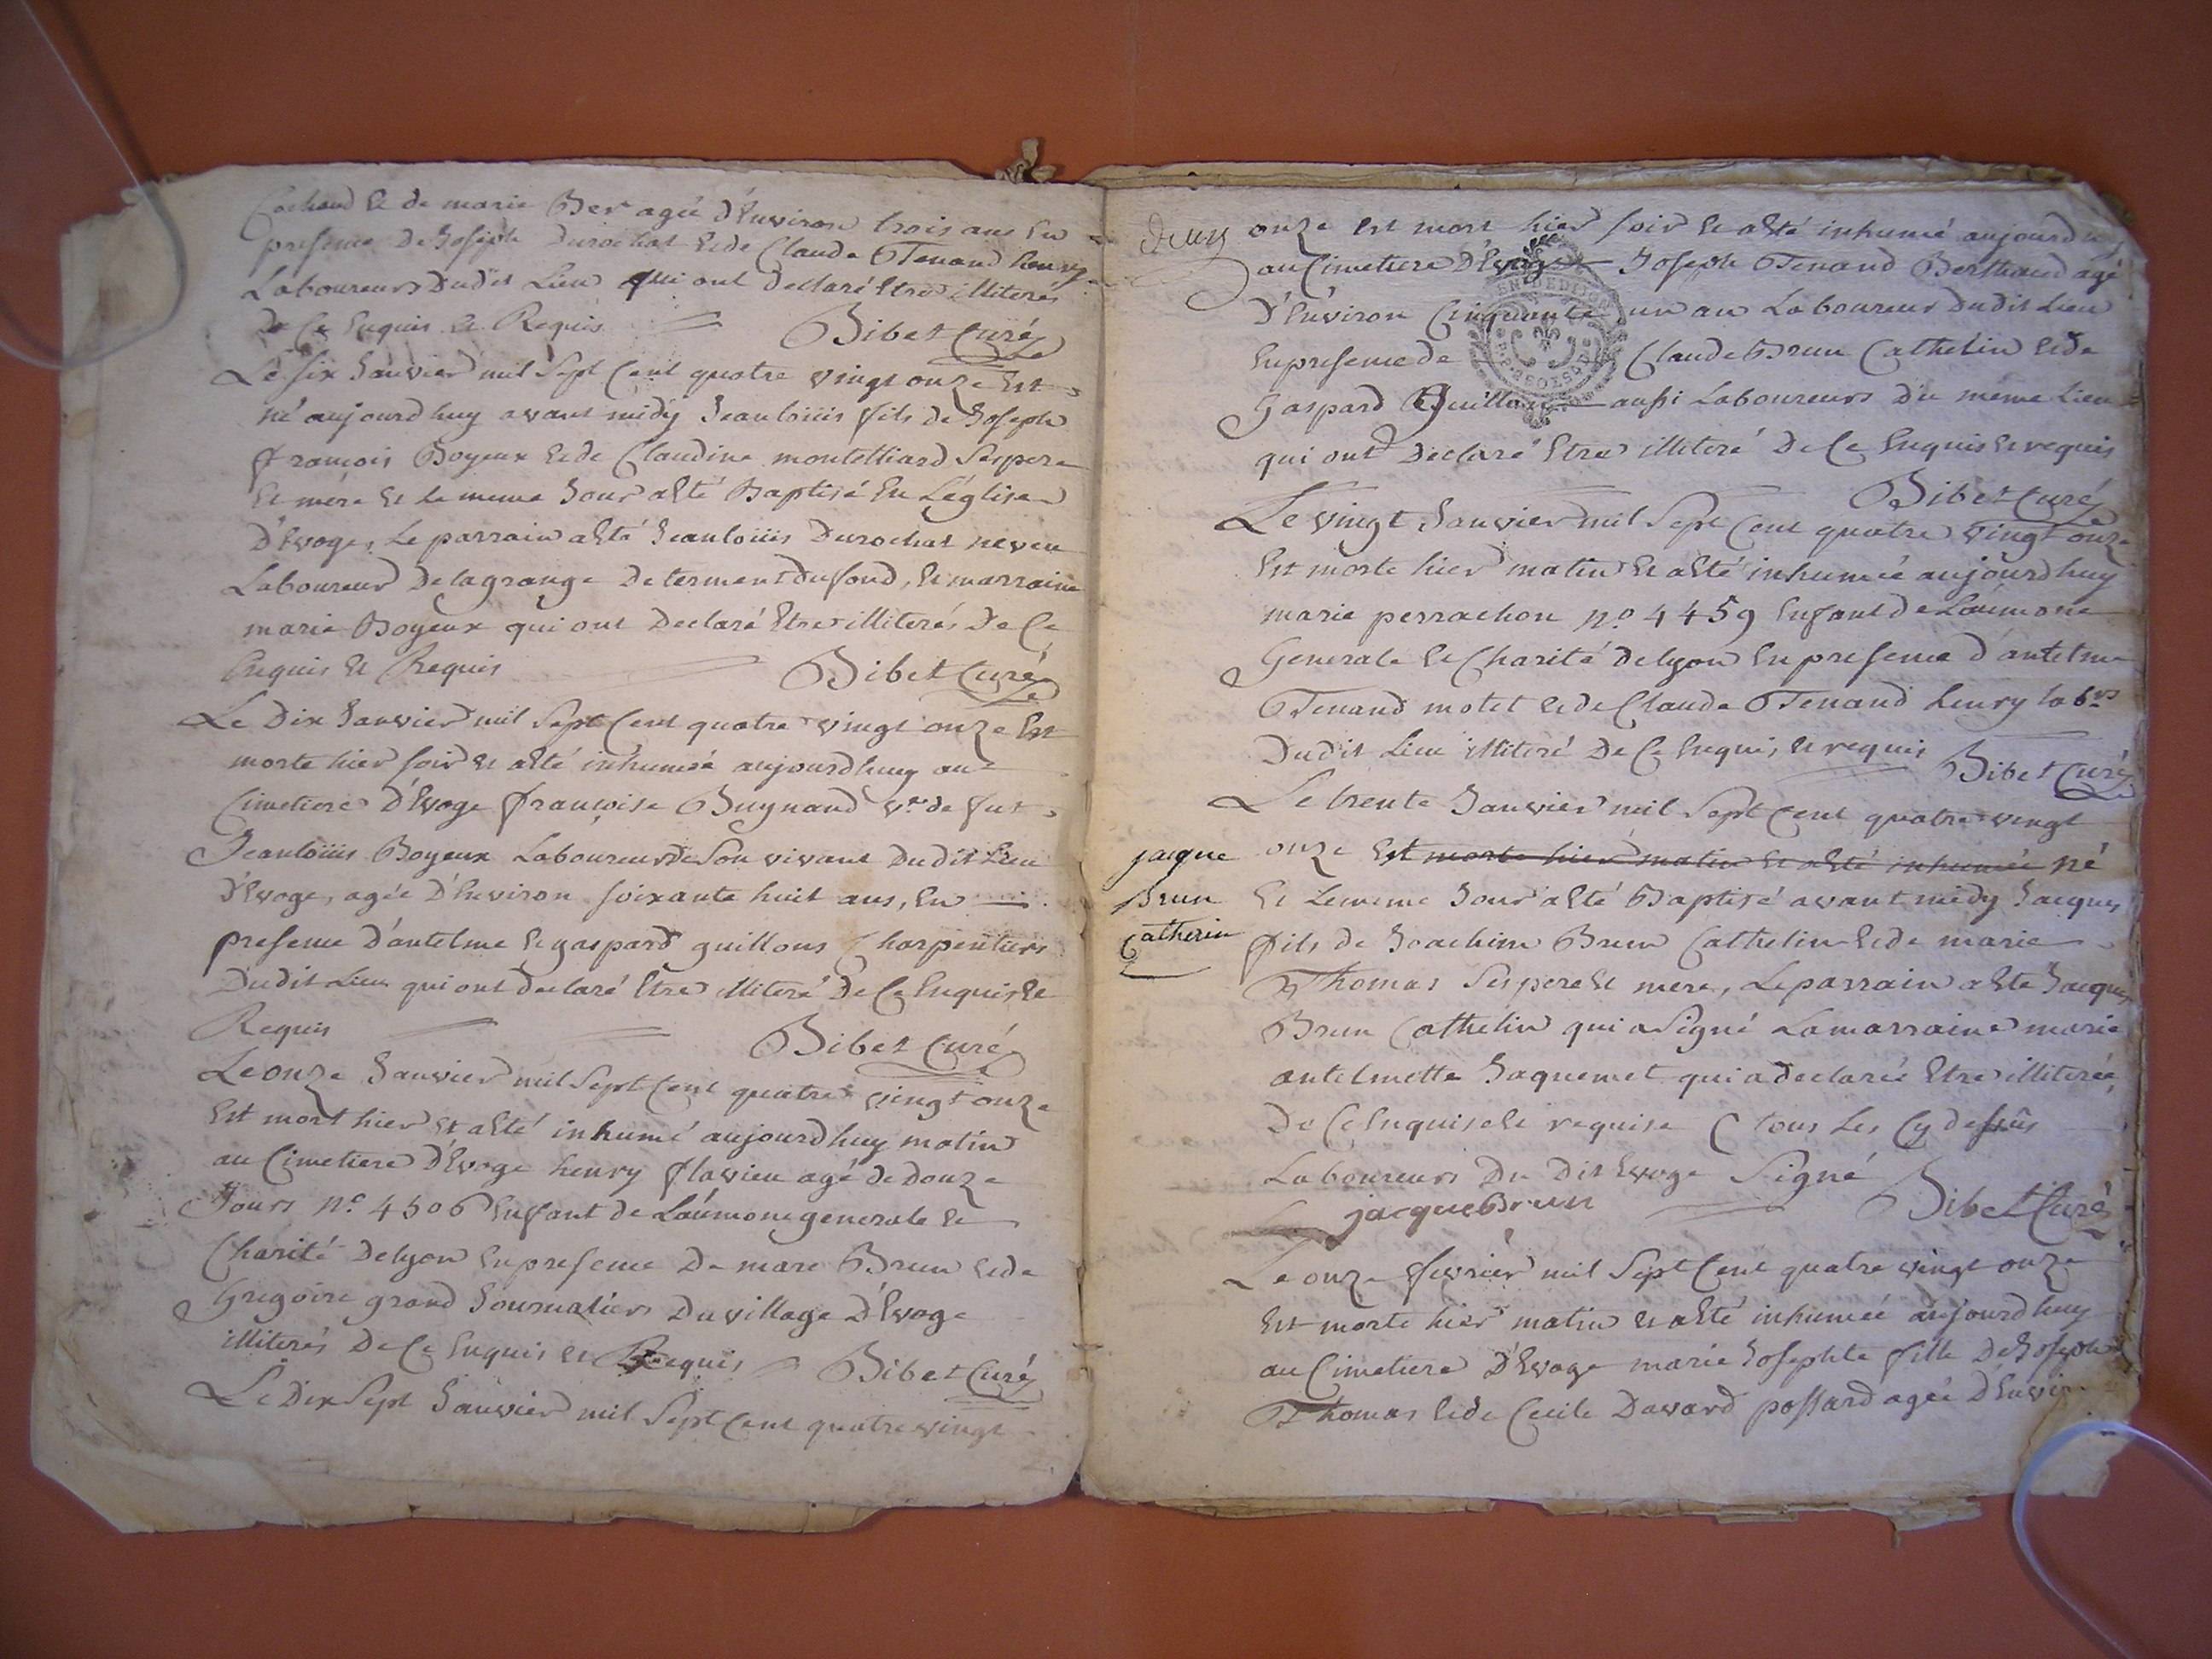 Cochand & de marie Ber agée d'Environ trois ans En
presence de Joseph Durochat & de Claude Tenand henry
Laboureurs Dudit Lieu qui ont declaré Etre illiterés
De Ce Enquis & Requis Bibet Curé
Le six Janvier mil Sept Cent quatre vingt onze Est
né aujourdhuy avant midy Jeanloüis fils de Joseph
françois Boyeux & de Claudine montelliard Ses pere
Et mére Et le meme Jour a Eté Baptisé En L'église
D'Evoge, Le parrain a Eté Jeanloüis Durochat neveu
Laboureur De lagrange De terment dufond, la marraine
marie Boyeux qui ont Declaré Etre illiterés De Ce
Enquis Et Requis Bibet Curé
Le Dix Janvier mil Sept Cent quatre vingt onze Est
morte hier soir Et a Eté inhumée aujourdhuy au
Cimetiere D'Evoge françoise Buynand Ve de fut
Jeanloüis Boyeux Laboureur de Son vivant Dudit Lieu
D'Evoge, agée D'Environ soixante huit ans, En
presence D'antelme & gaspard guillons Charpentiers
Dudit Lieu qui ont declaré Etre illiteré De Ce Enquis &
Requis Bibet Curé
Le onze Janvier mil Sept Cent quatre vingt onze
Est mort hier Et a Eté inhumé aujourdhuy matin
au Cimetiere D'Evoge henry flavien agé de Douze
Jours No. 4506 Enfant de Laúmone generale &
Charité De lyon En presence De marc Brun & de
Gregoire grand Journaliers Du village D'Evoge
illiterés De Ce Enquis Et Requis Bibet Curé
Le Dix Sept Janvier mil Sept Cent quatre vingt
deux
onze Est mort hier soir Et a Eté inhumé aujourdhuy
au Cimetiere D'Evoge Joseph Tenand Berthaud agé
D'Environ Cinquante un an Laboureur Dudit Lieu
En presence de Claude Brun Cathelin & de
Gaspard Guillon aussi Laboureurs Du même Lieu
qui ont Declaré Etre illiteré De Ce Enquis Et requis
Bibet Curé
Le vingt Janvier mil Sept Cent quatre vingt onze
Est morte hier matin Et a Eté inhumée aujourdhuy
marie perrachon No. 4459 Enfant de Laúmone
Generale & Charité De lyon En presence d'antelme
Tenand motet & de Claude Tenand henry labrs
Dudit Lieu illiteré De Ce Enquis Et requis
Bibet Curé
Le trente Janvier mil Sept Cent quatre vingt
onze Est morte hier matin Et a Eté inhumée né
jacque
Brun
Catherin
Et Le meme Jour a Eté Baptisé avant midy Jacques
fils de Joachim Brun Cathelin & de marie
Thomas Ses pere Et mere, Le parrain a Eté Jacques
Brun Cathelin qui a Signé La marraine marie
antelmette Jaquemet qui a declarée Etre illiterée
De Ce Enquise Et requise tous Les Cy dessûs
Laboureurs Du Dit Evoge Signé
jacque Brun Bibet Curé
Le onze fevrier mil Sept Cent quatre vingt onze
Est morte hier matin Et a Eté inhumée aujourdhuy
au Cimetiere D'Evoge marie Josephte fille De Joseph
Thomas & de Cecile Davard possard agée D'Envir